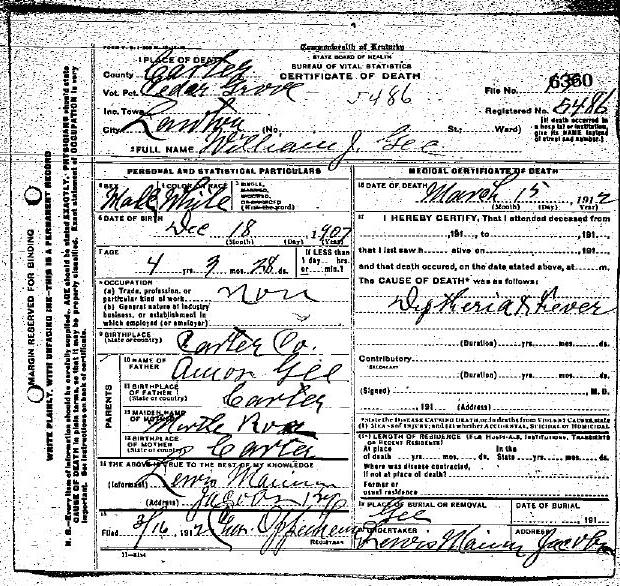 Commonwealth of Kentucky
STATE BOARD OF HEALTH
BUREAU OF VITAL STATISTICS
CERTIFICATE OF DEATH
1 PLACE OF DEATH
County Carter
Vot. Pct. Cedar Grove
5486
File No. 6360
Inc. Town
Registered No. 5486
City (No. St.; Ward)
[If death occurred in a hospital or institution, give its NAME instead of street and number.]
2 FULL NAME William J. Gee
PERSONAL AND STATISTICAL PARTICULARS
3 SEX Male
4 COLOR OR RACE White
5 SINGLE, MARRIED, WIDOWED, OR DIVORCED (Write the word)
6 DATE OF BIRTH
Dec 18 1907
(Month) (Day) (Year)
7 AGE
4 yrs. 2 mos. 28 ds.
If LESS than 1 day hrs. or min.?
8 OCCUPATION
(a) Trade, profession, or particular kind of work
(b) General nature of industry business, or establishment in which employed (or employer)
non
9 BIRTHPLACE (State or country)
Carter Co.
PARENTS
10 NAME OF FATHER Amon Gee
11 BIRTHPLACE OF FATHER (State or country) Carter
12 MAIDEN NAME OF MOTHER Myrtle
13 BIRTHPLACE OF MOTHER (State or country) Carter
14 THE ABOVE IS TRUE TO THE BEST OF MY KNOWLEDGE
(Informant) Lewis
(Address) Jacobs Ky
15
Filed 3/16 1912
REGISTRAR
MEDICAL CERTIFICATE OF DEATH
16 DATE OF DEATH March 15 1912
(Month) (Day) (Year)
17 I HEREBY CERTIFY, That I attended deceased from
191 to 191
that I last saw h alive on 191
and that death occured, on the date stated above, at m.
The CAUSE OF DEATH* was as follows:
Diptheria & Fever
(Duration) yrs. mos. ds.
Contributory
SECONDARY
(Duration) yrs. mos. ds.
(Signed) M.D.
191 (Address)
*State the DISEASE CAUSING DEATH, or in deaths from VIOLENT CAUSES, state (1) MEANS OF INJURY; and (2) whether ACCIDENTAL, SUICIDAL OR HOMICIDAL
18 LENGTH OF RESIDENCE (FOR HOSPITALS, INSTITUTIONS, TRANSIENTS OR RECENT RESIDENTS)
At place of death yrs. mos. ds. In the State yrs. mos. ds.
Where was disease contracted, if not at place of death?
Former or usual residence
19 PLACE OF BURIAL OR REMOVAL
Gee
DATE OF BURIAL
191
20 UNDERTAKER
Lewis
ADDRESS
Jacobs
MARGIN RESERVED FOR BINDING
WRITE PLAINLY, WITH UNFADING INK—THIS IS A PERMANENT RECORD
N. B.—Every item of information should be carefully supplied. AGE should be stated EXACTLY. PHYSICIANS should state CAUSE OF DEATH in plain terms, so that it may be properly classified. Exact statement of OCCUPATION is very important. See instructions on back of certificate.